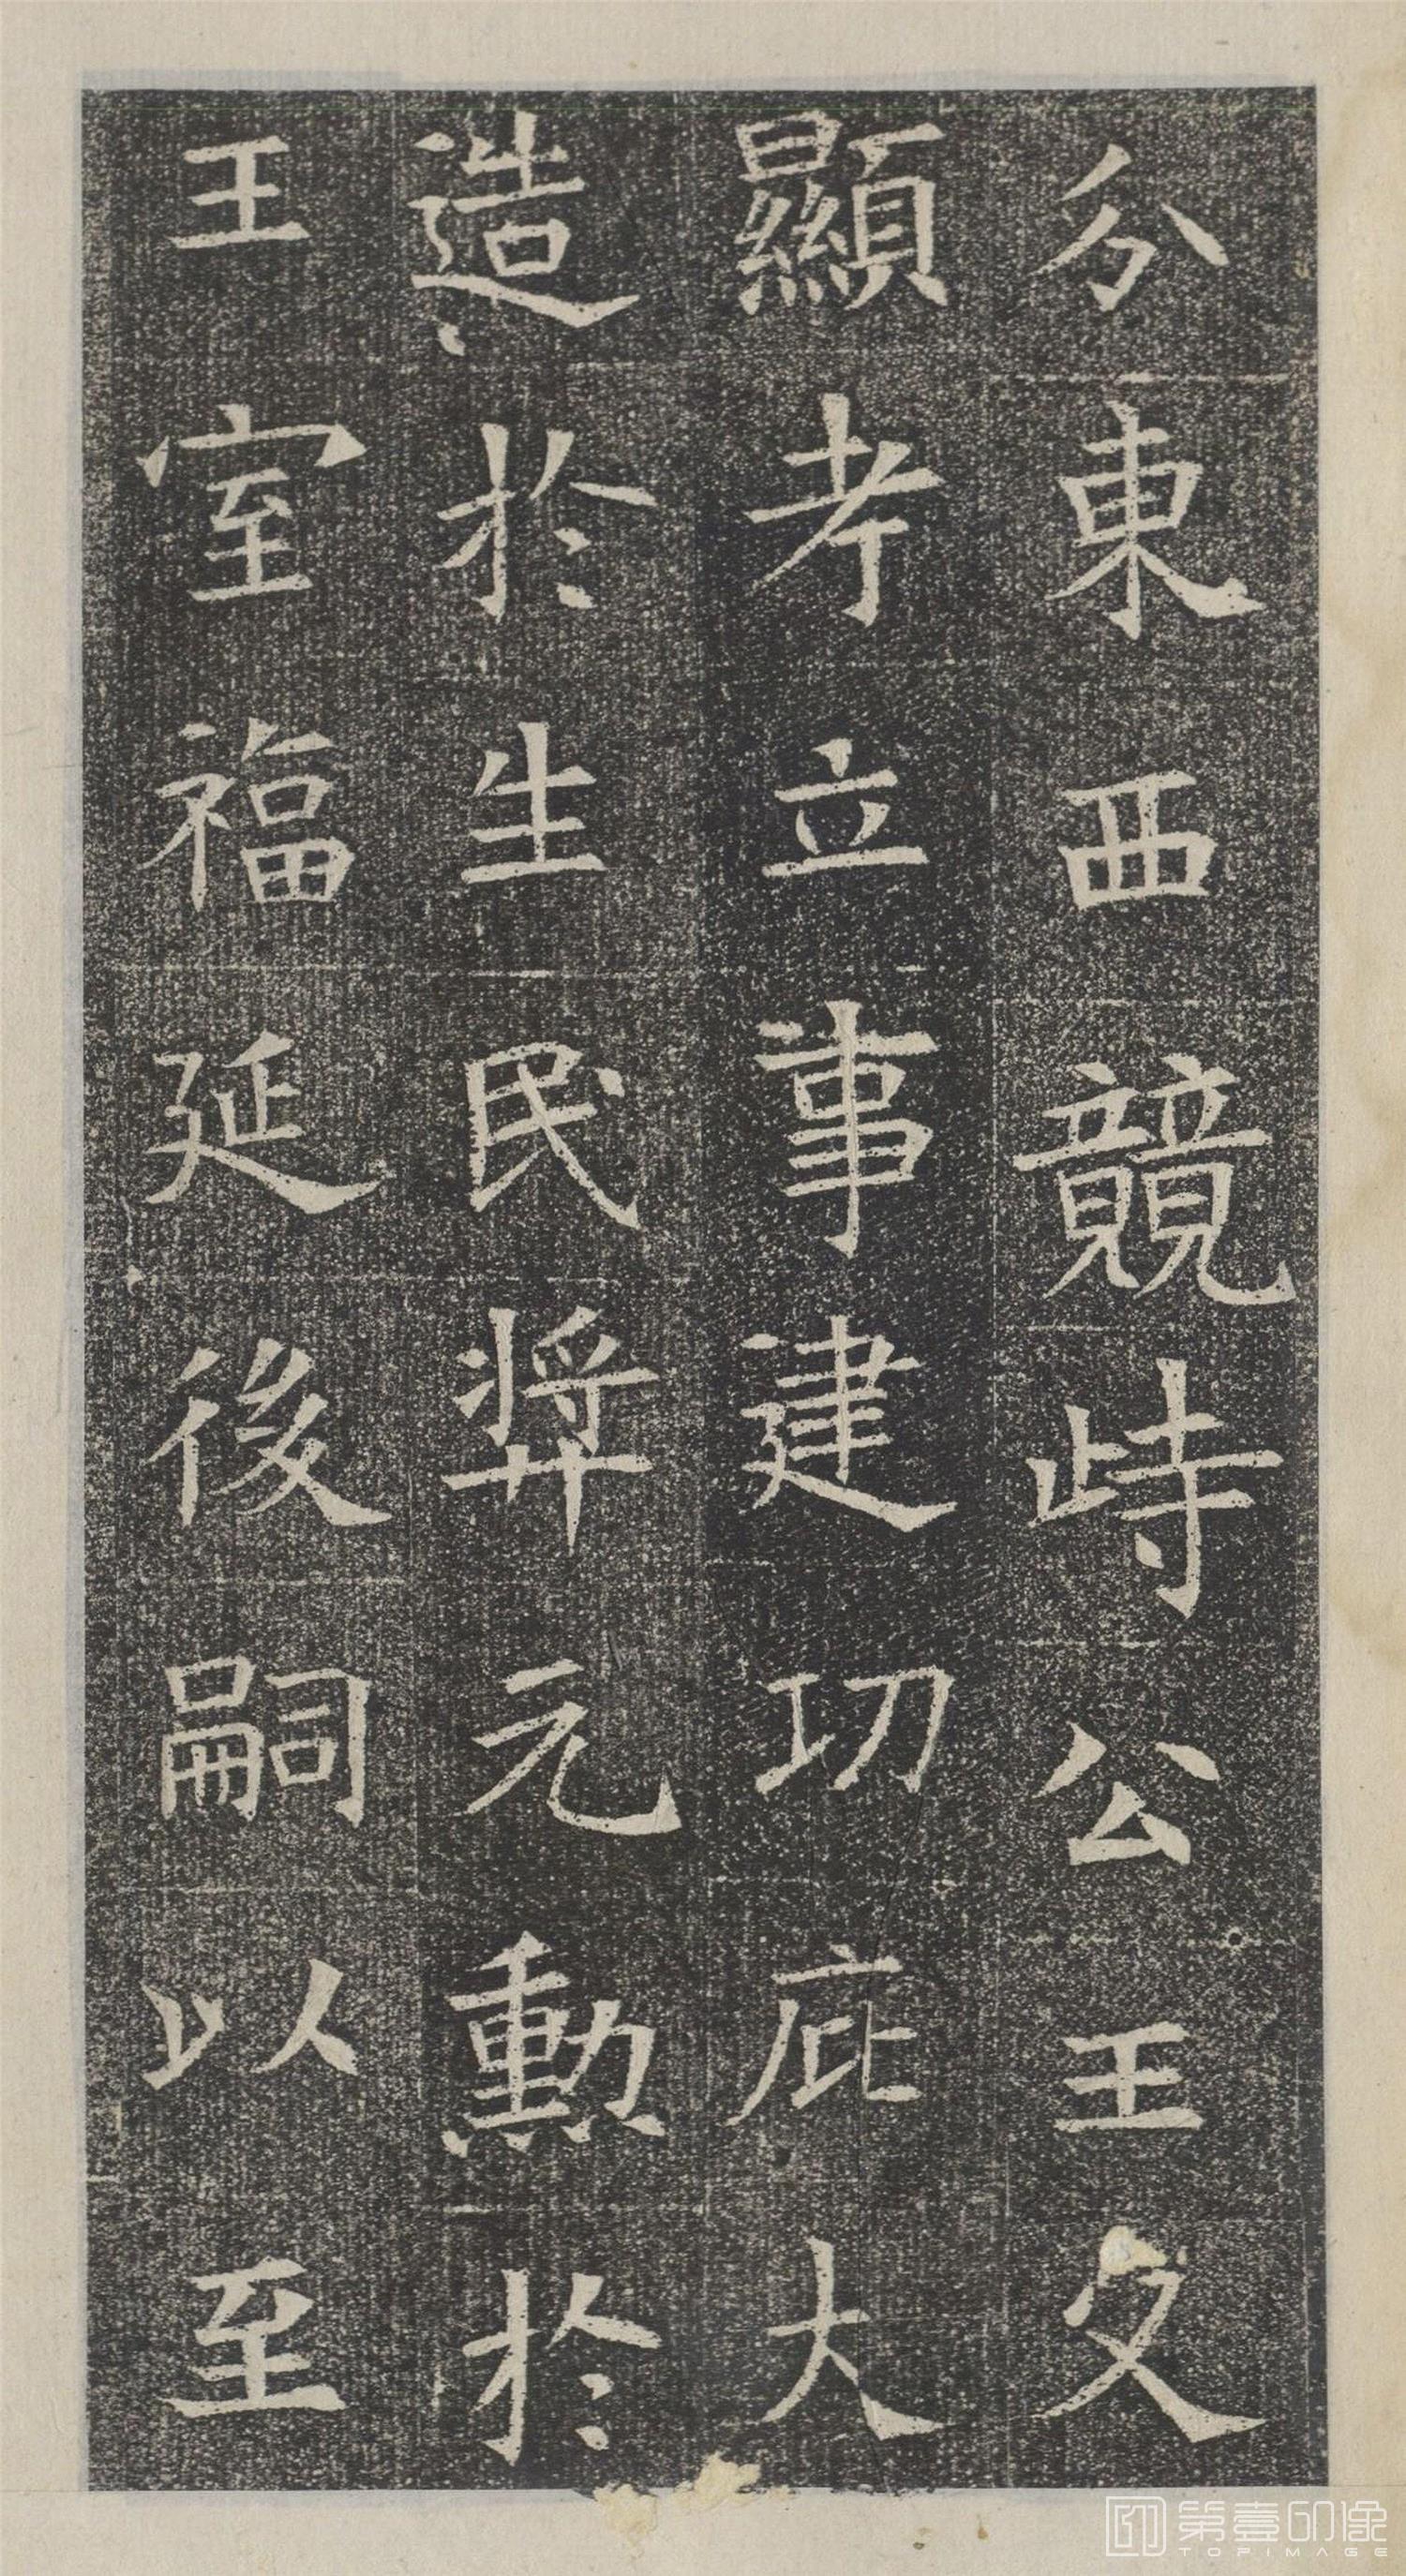 分東西競峙公王文
顯考立事建功庇大
造於生民弉元勳於
王室福延後嗣以至
第壹印像
TOPIMAGE